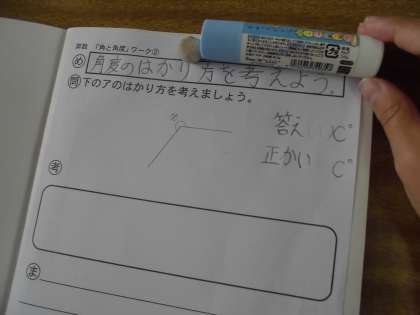 算数 「角と角度」ワーク②
め 角度のはかり方を考えよう。
問 下のアのはかり方を考えましょう。
答え x°
正かい C°
考
ま